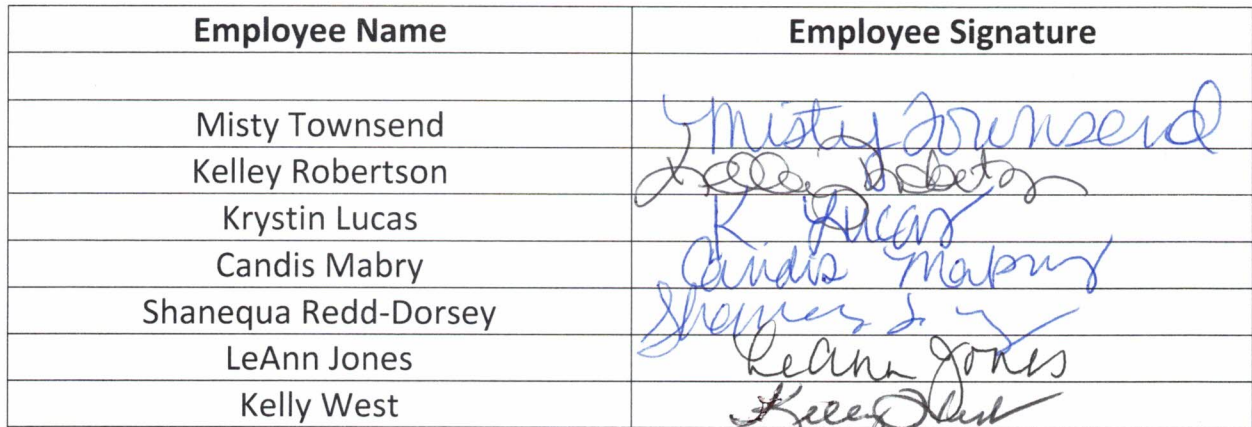 Employee Name Employee Signature
Misty Townsend Misty Townsend
Kelley Robertson Kelley
Krystin Lucas K Lucas
Candis Mabry Candis Mabry
Shanequa Redd-Dorsey
LeAnn Jones LeAnn Jones
Kelly West Kelly West